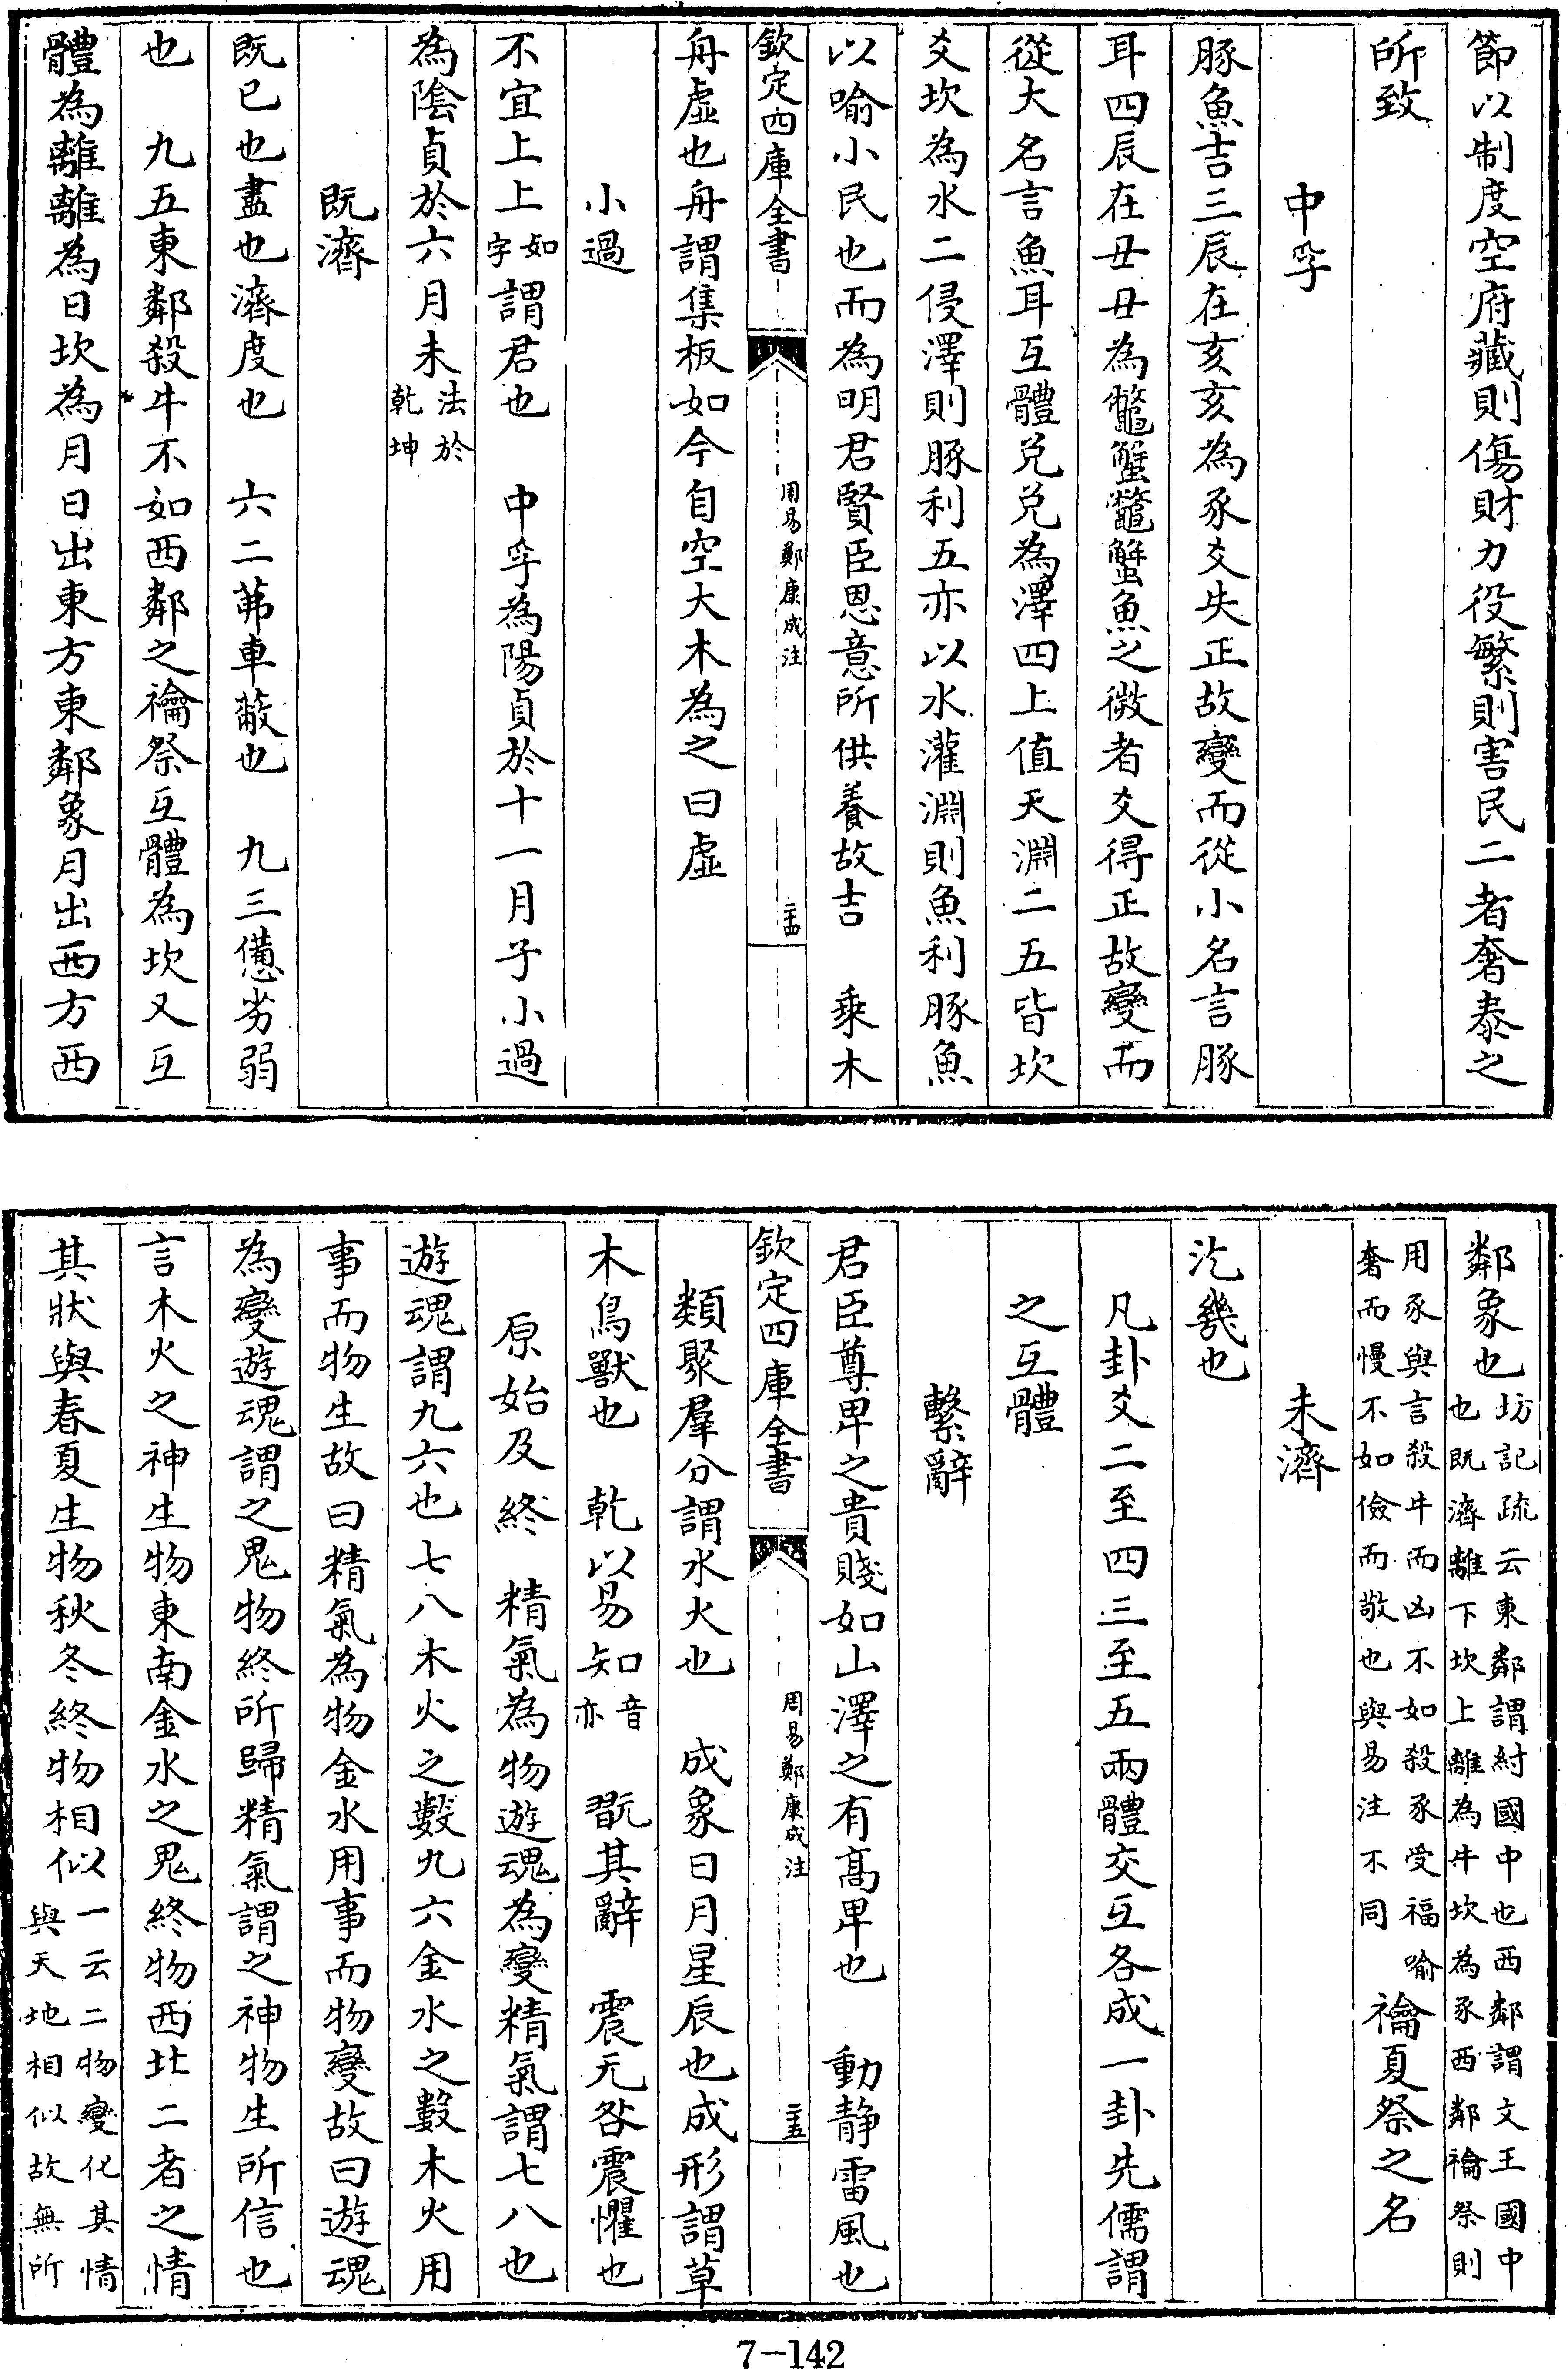 節以制度空府藏則傷財力役繁則害民二者奢泰之
所致
中孚
豚魚吉三辰在亥亥為豕爻失正故變而從小名言豚
耳四辰在丑丑為鼈蟹鼈蟹魚之微者爻得正故變而
從大名言魚耳互體兌兌為澤四上值天淵二五皆坎
爻坎為水二侵澤則豚利五亦以水灌淵則魚利豚魚
以喻小民也而為明君賢臣恩意所供養故吉　乗木
欽定四庫全書
周易鄭康成注
三十四
舟虛也舟謂集板如今自空大木為之曰虛
小過
不宜上上如字謂君也　中孚為陽貞於十一月子小過
為陰貞於六月未法於乾坤
既濟
既已也盡也濟度也　六二茀車蔽也　九三憊劣弱
也　九五東鄰殺牛不如西鄰之禴祭互體為坎又互
體為離離為日坎為月日出東方東鄰象月出西方西
鄰象也坊記疏云東鄰謂紂國中也西鄰謂文王國中也既濟離下坎上離為牛坎為豕西鄰禴祭則
用豕與言殺牛而凶不如殺豕受福喻奢而慢不如儉而敬也與易注不同　禴夏祭之名
未濟
汔幾也
凡卦爻二至四三至五兩體交互各成一卦先儒謂
之互體
繫辭
君臣尊卑之貴賤如山澤之有髙卑也　動静雷風也
欽定四庫全書
周易鄭康成注
三十五
類聚羣分謂水火也　成象日月星辰也成形謂草
木鳥獸也　乾以易知音亦　翫其辭　震无咎震懼也
原始及終　精氣為物遊魂為變精氣謂七八也
遊魂謂九六也七八木火之數九六金水之數木火用
事而物生故曰精氣為物金水用事而物變故曰遊魂
為變遊魂謂之鬼物終所歸精氣謂之神物生所信也
言木火之神生物東南金水之鬼終物西北二者之情
其狀與春夏生物秋冬終物相似一云二物變化其情與天地相似故無所
7-142